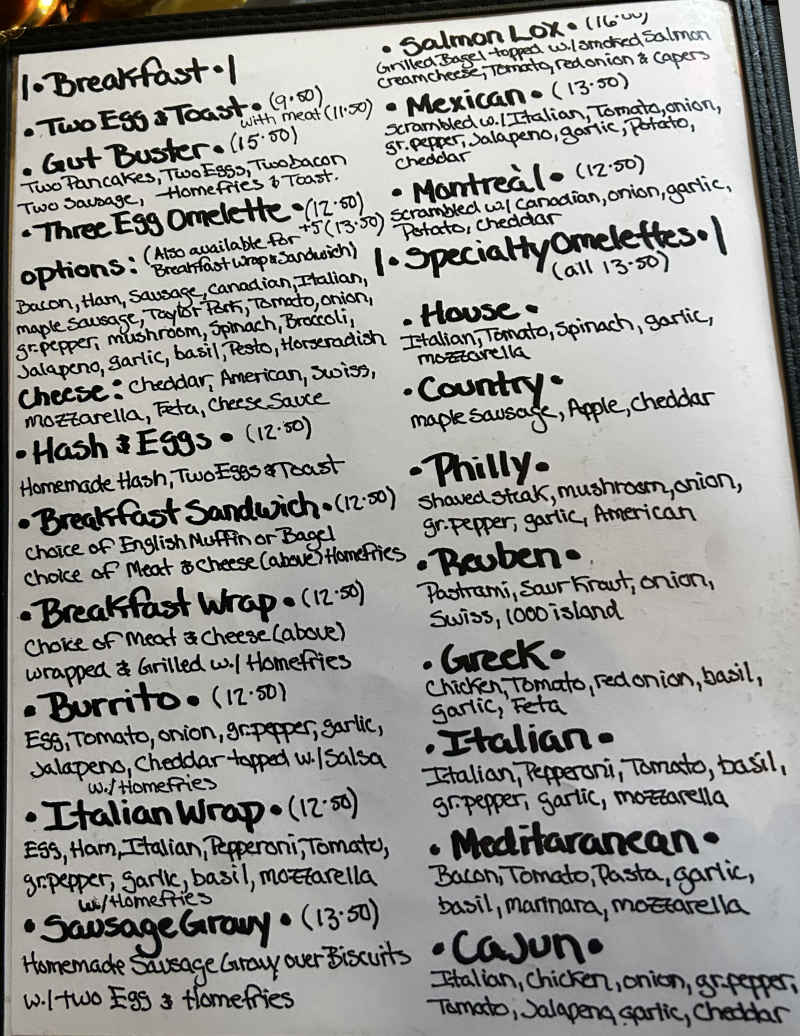 |• Breakfast •|
• Two Egg & Toast • (9.50)
with meat (11.50)
• Gut Buster • (15.50)
Two Pancakes, Two Eggs, Two bacon
Two Sausage, Homefries & Toast.
• Three Egg Omelette • (12.50)
+5 (13.50)
options: (Also available for
Breakfast Wrap & Sandwich)
Bacon, Ham, Sausage, Canadian, Italian,
maple Sausage, Taylor Pork, Tomato, onion,
gr.pepper, mushroom, Spinach, Broccoli,
Jalapeno, garlic, basil, Pesto, Horseradish
Cheese: Cheddar, American, Swiss,
mozzarella, Feta, Cheese Sauce
• Hash & Eggs • (12.50)
Homemade Hash, Two Eggs & Toast
• Breakfast Sandwich • (12.50)
Choice of English Muffin or Bagel
Choice of Meat & Cheese (above) Homefries
• Breakfast Wrap • (12.50)
Choice of Meat & Cheese (above)
wrapped & Grilled w./ Homefries
• Burrito • (12.50)
Egg, Tomato, onion, gr.pepper, garlic,
Jalapeno, Cheddar topped w./ Salsa
w./ Homefries
• Italian Wrap • (12.50)
Egg, Ham, Italian, Pepperoni, Tomato,
gr.pepper, garlic, basil, mozzarella
w./ Homefries
• Sausage Gravy • (13.50)
Homemade Sausage Gravy over Biscuits
w./ two Egg & Homefries
• Salmon Lox • (16.00)
Grilled Bagel topped w./ smoked Salmon
creamcheese, Tomato, red onion & Capers
• Mexican • (13.50)
Scrambled w./ Italian, Tomato, onion,
gr.pepper, Jalapeno, garlic, Potato,
cheddar
• Montreàl • (12.50)
Scrambled w./ Canadian, onion, garlic,
Potato, Cheddar
|• Specialty Omelettes •|
(all 13.50)
• House •
Italian, Tomato, Spinach, garlic,
mozzarella
• Country •
maple sausage, Apple, Cheddar
• Philly •
Shaved steak, mushroom, onion,
gr.pepper, garlic, American
• Reuben •
Pastrami, Saur Kraut, onion,
Swiss, 1000 island
• Greek •
Chicken, Tomato, red onion, basil,
garlic, Feta
• Italian •
Italian, Pepperoni, Tomato, basil,
gr.pepper, garlic, mozzarella
• Meditaranean •
Bacon, Tomato, Pasta, garlic,
basil, marinara, mozzarella
• Cajun •
Italian, Chicken, onion, gr.pepper,
Tomato, Jalapeno, garlic, Cheddar